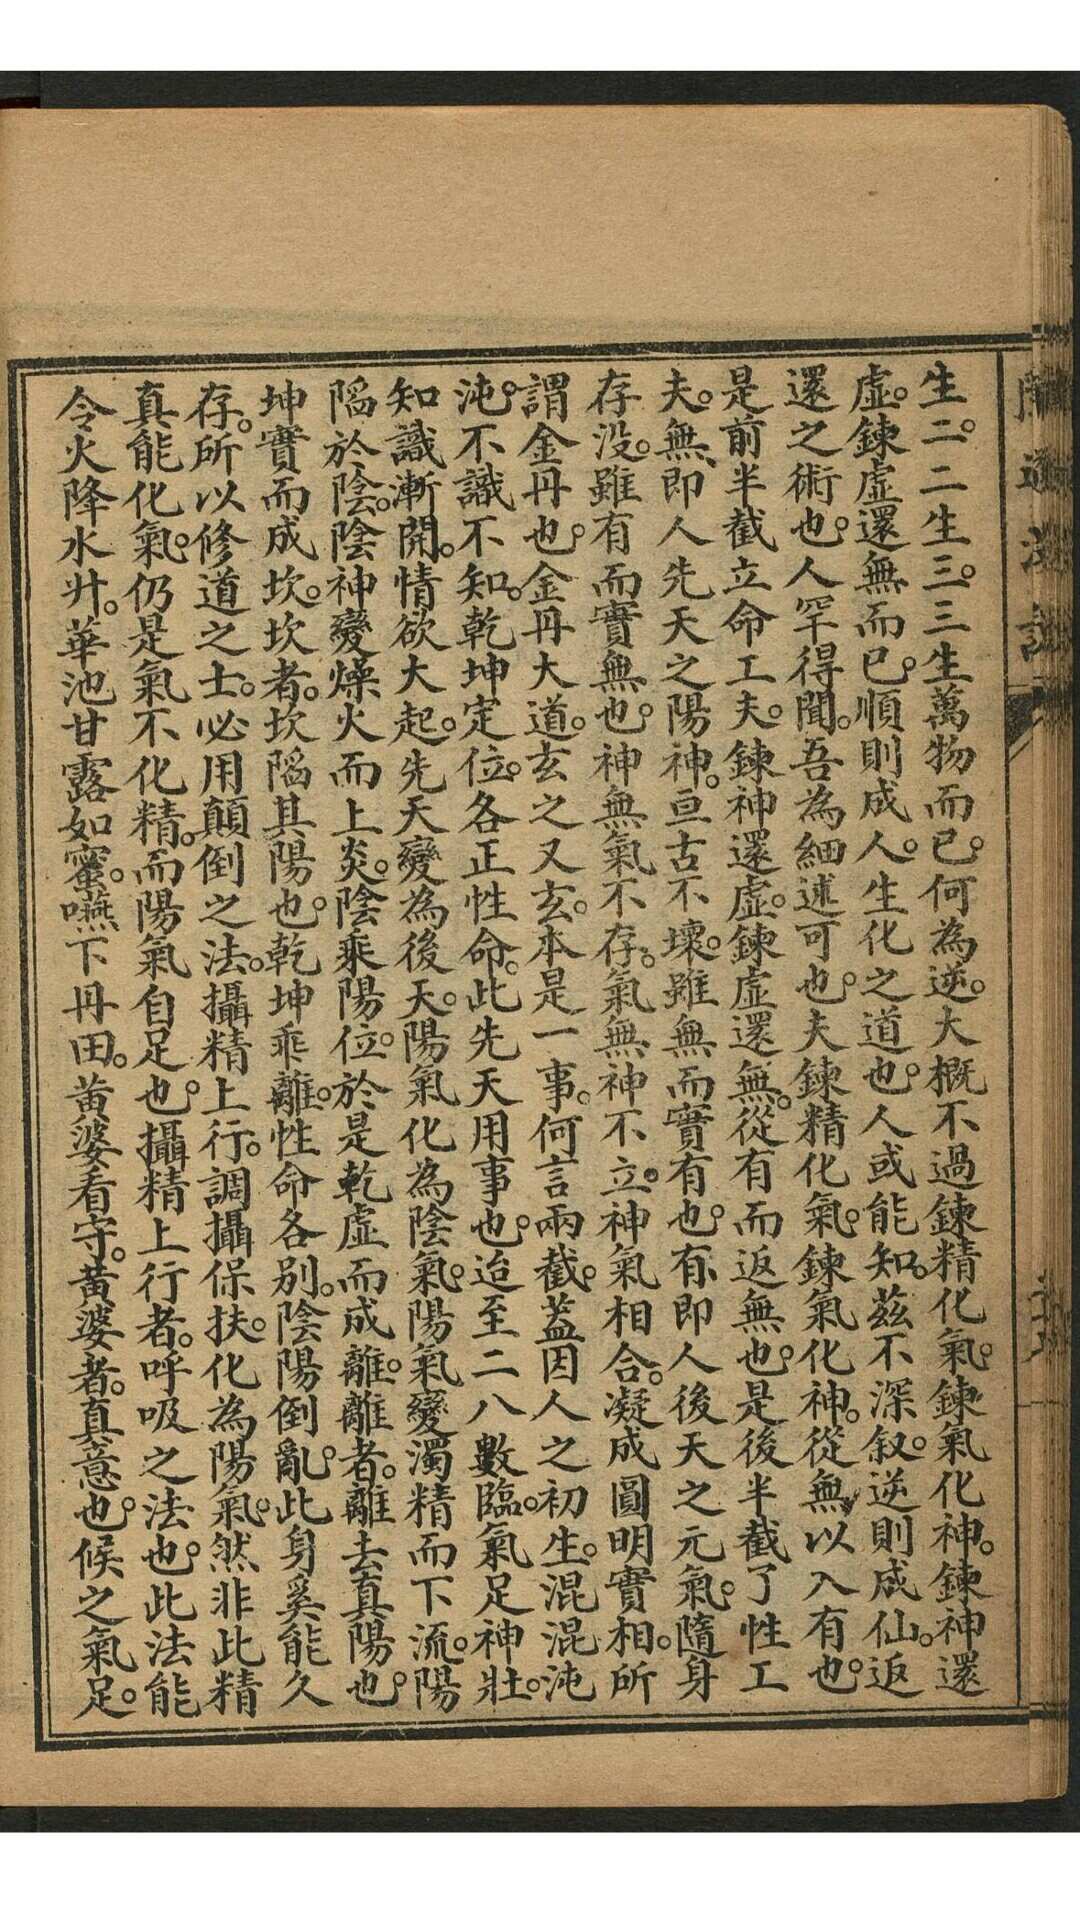 生二。二生三。三生萬物而已。何為逆。大概不過鍊精化氣。鍊氣化神。鍊神還
虛。鍊虛還無而已。順則成人。生化之道也。人或能知。茲不深叙。逆則成仙。返
還之術也。人罕得聞。吾為細述可也。夫鍊精化氣。鍊氣化神。從無以入有也。
是前半截立命工夫。鍊神還虛。鍊虛還無。從有而返無也。是後半截了性工
夫。無、即人先天之陽神。亘古不壞。雖無而實有也。有、即人後天之元氣。隨身
存沒。雖有而實無也。神無氣不存。氣無神不立。神氣相合。凝成圓明實相。所
謂金丹也。金丹大道。玄之又玄。本是一事。何言兩截。蓋因人之初生。混混沌
沌。不識不知。乾坤定位。各正性命。此先天用事也。迨至二八數臨。氣足神壯。
知識漸開。情欲大起。先天變為後天。陽氣化為陰氣。陽氣變濁精而下流。陽
陷於陰。陰神變燥火而上炎。陰乘陽位。於是乾虛而成離。離者。離去真陽也。
坤實而成坎。坎者。坎陷其陽也。乾坤乖離。性命各別。陰陽倒亂。此身奚能久
存。所以修道之士。必用顛倒之法。攝精上行。調攝保扶。化為陽氣。然非此精
真能化氣。仍是氣不化精。而陽氣自足也。攝精上行者。呼吸之法也。此法能
令火降水升。華池甘露如蜜。嚥下丹田。黃婆看守。黃婆者。真意也。候之氣足。